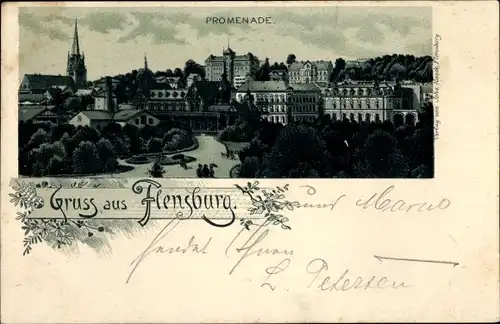 PROMENADE.
Verlag von
Flensburg
Gruss aus Flensburg.
und
sendet Ihnen
L. Petersen